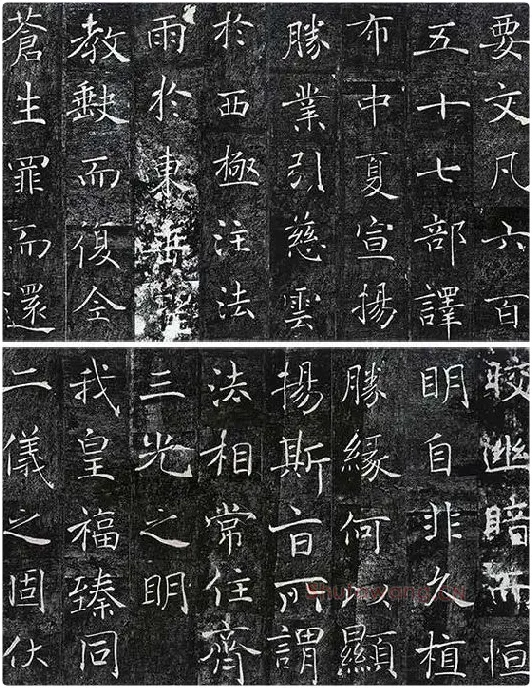 要文凡六百
五十七部譯
布中夏宣揚
勝業引慈雲
於西極注法
雨於東垂
教缺而復全
蒼生罪而還
皎幽暗而恒
明自非久植
勝緣何以顯
揚斯旨所謂
法相常住齊
三光之明
我皇福臻同
二儀之固伏